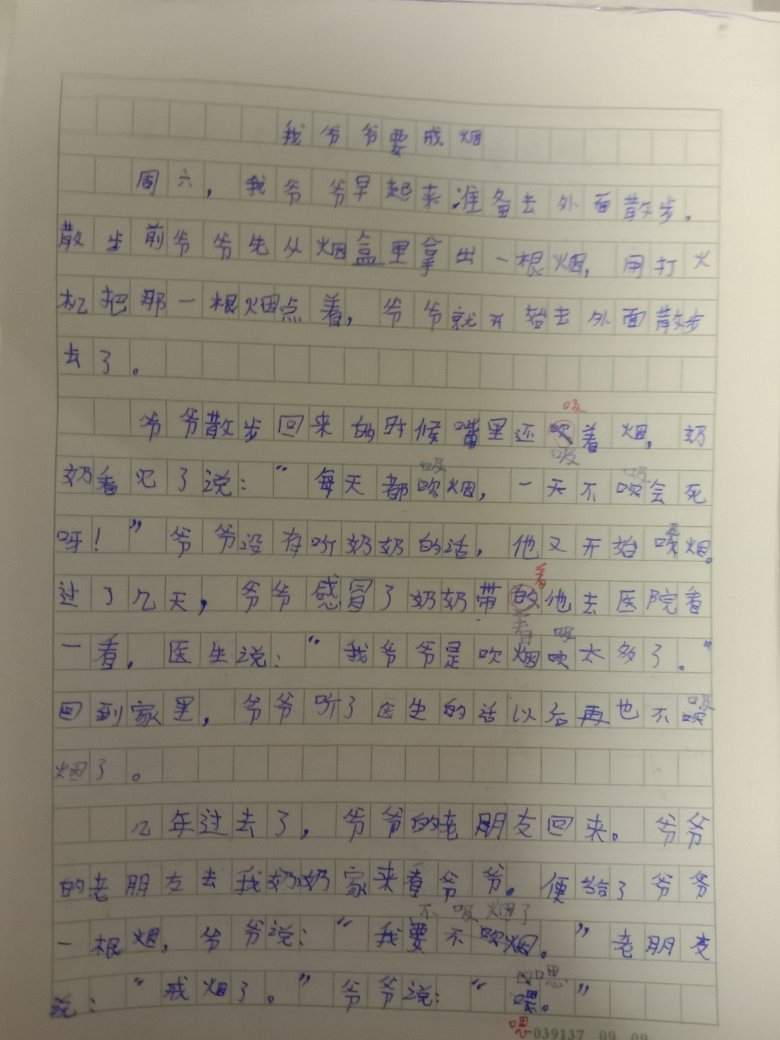 我爷爷要戒烟
周六，我爷爷早起来准备去外面散步。
散步前爷爷先从烟盒里拿出一根烟，用打火
机把那一根烟点着，爷爷就开始去外面散步
去了。
吸
爷爷散步回来的时候嘴里还吹着烟，奶
吸
吸 吸
奶看见了说：“每天都吹烟，一天不吹会死
呀！”爷爷没有听奶奶的话，他又开始吹烟。
着
过了几天，爷爷感冒了奶奶带的他去医院看
着 吸
一看，医生说：“我爷爷是吹烟吹太多了。”
吸
回到家里，爷爷听了医生的话以后再也不吹
烟了。
几年过去了，爷爷的老朋友回来。爷爷
的老朋友去我奶奶家来看爷爷。便给了爷爷
不吸烟了
一根烟，爷爷说：“我要不吹烟。”老朋友
嗯
说：“戒烟了。”爷爷说：“嗯。”
嗯
039137 09 09